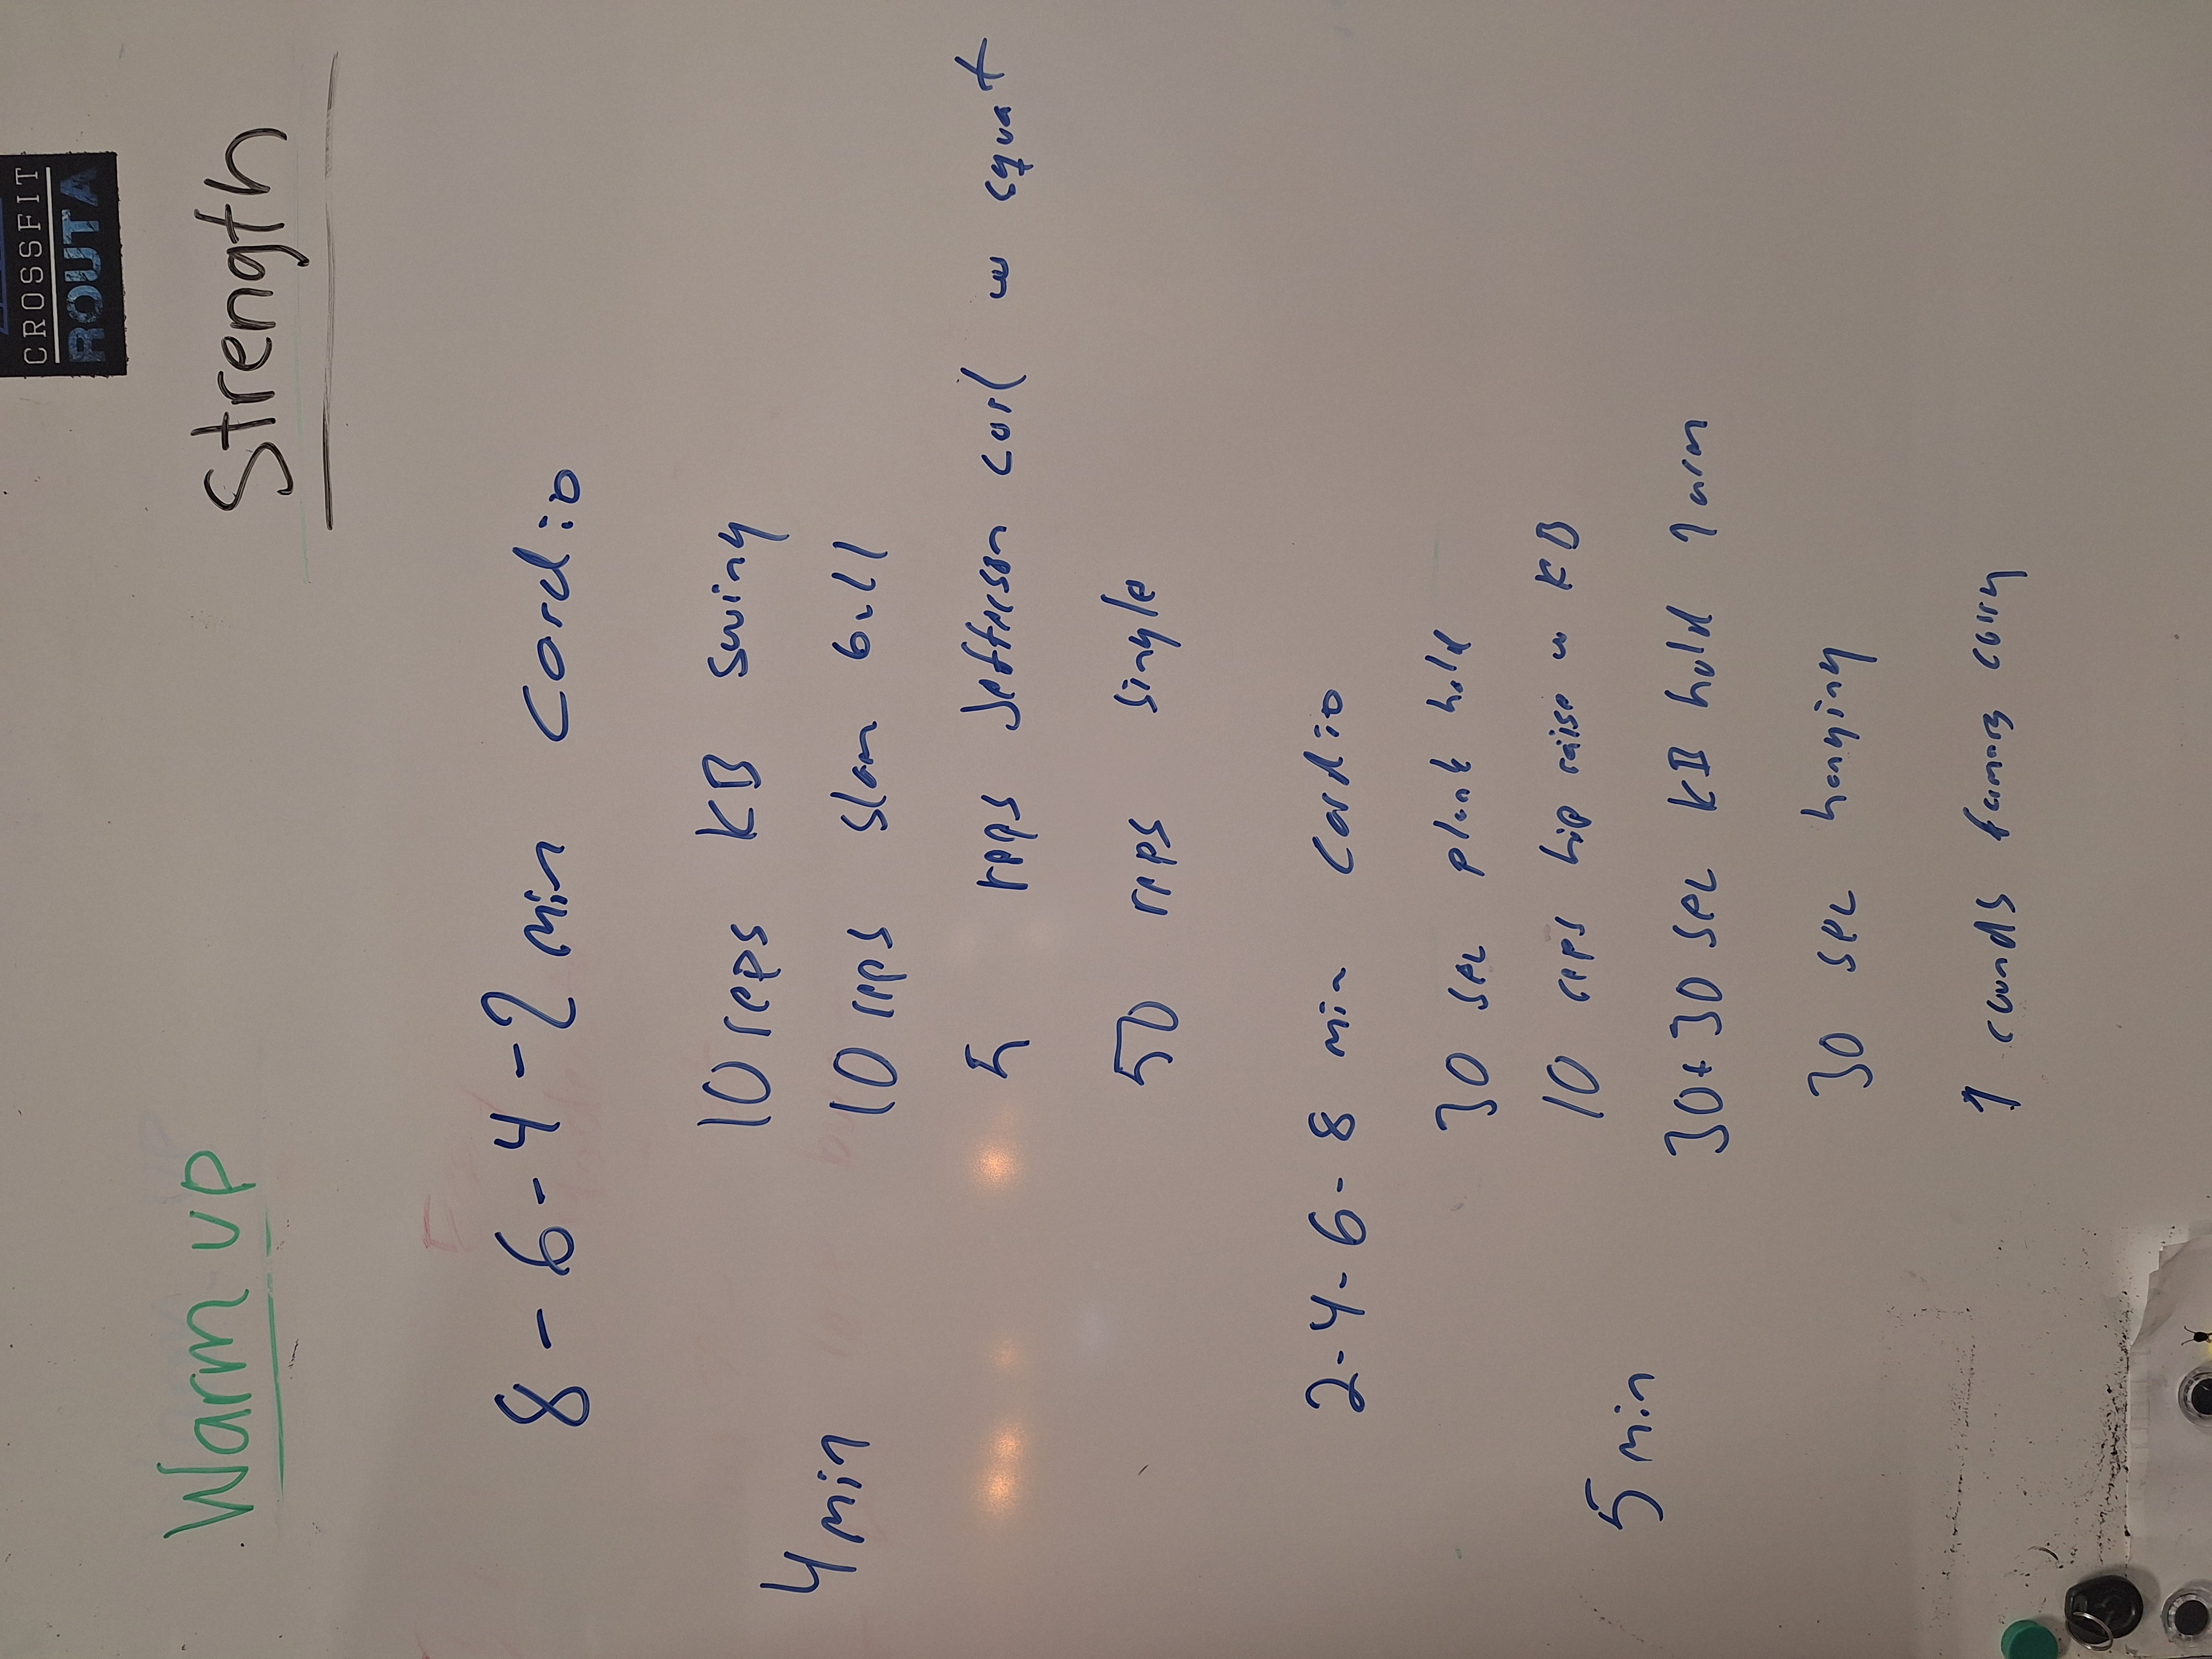 CROSSFIT
ROUTA
Warm up
Strength
8-6-4-2 min Cardio
4 min
10 reps KB swing
10 reps slam ball
5 reps Jefferson curl w squat
50 reps single
2-4-6-8 min cardio
5 min
30 sec plank hold
10 reps hip raise w KB
30+30 sec KB hold 1 arm
30 sec hanging
1 rounds farmers carry